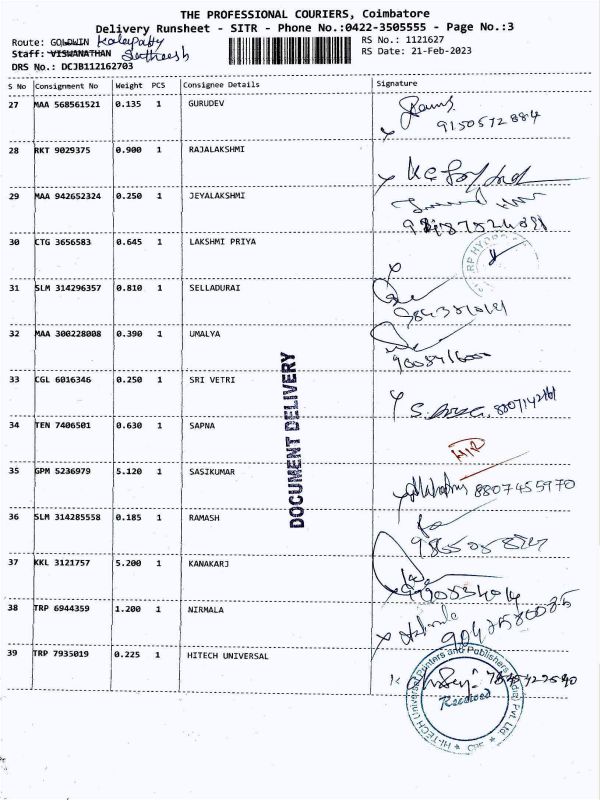 THE PROFESSIONAL COURIERS, Coimbatore
Delivery Runsheet - SITR - Phone No.:0422-3505555 - Page No.:3
Route: GOLDWIN Kalapatty
RS No.: 1121627
Staff: VISWANATHAN Satheesh
RS Date: 21-Feb-2023
DRS No.: DCJB112162703
S No Consignment No Weight PCS Consignee Details Signature
27 MAA 568561521 0.135 1 GURUDEV
9150572884
28 RKT 9029375 0.900 1 RAJALAKSHMI
29 MAA 942652324 0.250 1 JEYALAKSHMI
30 CTG 3656583 0.645 1 LAKSHMI PRIYA
31 SLM 314296357 0.810 1 SELLADURAI
32 MAA 300228008 0.390 1 UMALYA
33 CGL 6016346 0.250 1 SRI VETRI
34 TEN 7406501 0.630 1 SAPNA
35 GPM 5236979 5.120 1 SASIKUMAR
8807455970
36 SLM 314285558 0.185 1 RAMASH
37 KKL 3121757 5.200 1 KANAKARJ
38 TRP 6944359 1.200 1 NIRMALA
39 TRP 7935019 0.225 1 HITECH UNIVERSAL
DOCUMENT DELIVERY
HI-TECH Universal Printers and Publishers (India) Pvt. Ltd.
Received
CBE